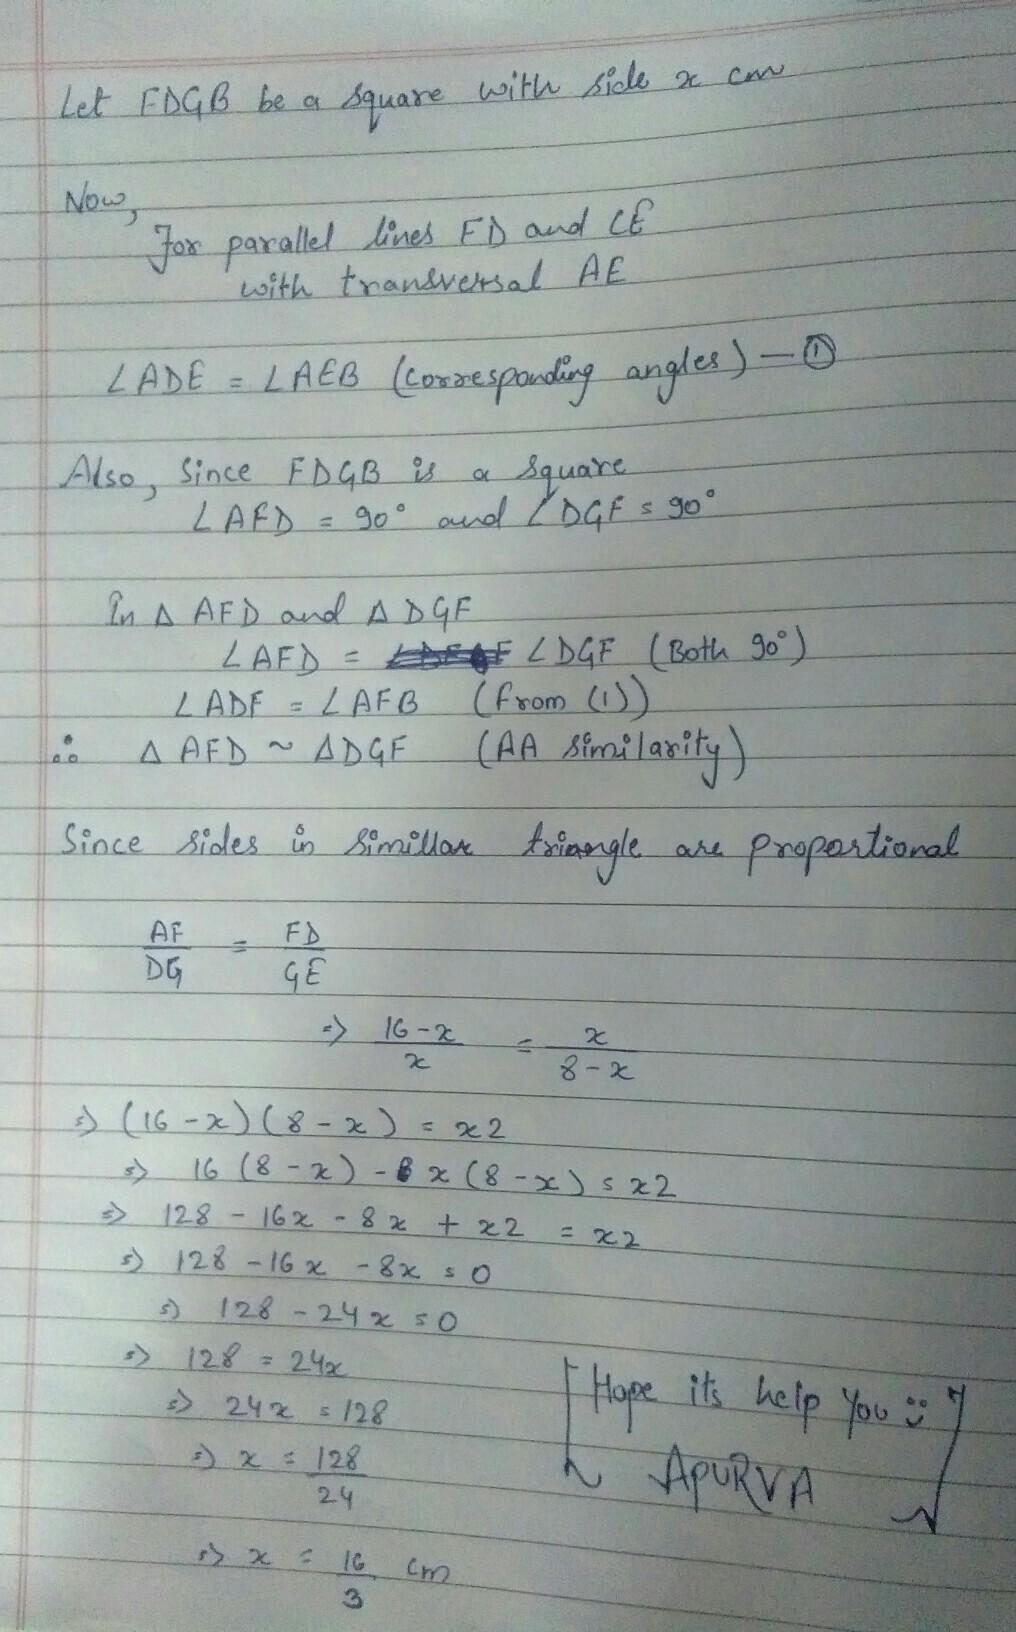 Let FDGB be a square with side x cm
Now,
For parallel lines FD and CE
with transversal AE
∠ADE = ∠AEB (Corresponding angles) — ①
Also, Since FDGB is a square
∠AFD = 90° and ∠DGF = 90°
In Δ AFD and Δ DGF
∠AFD = ∠DGF (Both 90°)
∠ADF = ∠AFB (from (1))
∴ Δ AFD ~ ΔDGF (AA similarity)
Since sides in simillar triangle are proportional
AF/DG = FD/GE
⇒ 16-x/x = x/8-x
⇒ (16-x)(8-x) = x2
⇒ 16(8-x) - x(8-x) = x2
⇒ 128 - 16x - 8x + x2 = x2
⇒ 128 - 16x - 8x = 0
⇒ 128 - 24x = 0
⇒ 128 = 24x
⇒ 24x = 128
⇒ x = 128/24
⇒ x = 16/3 cm
Hope its help you
APURVA